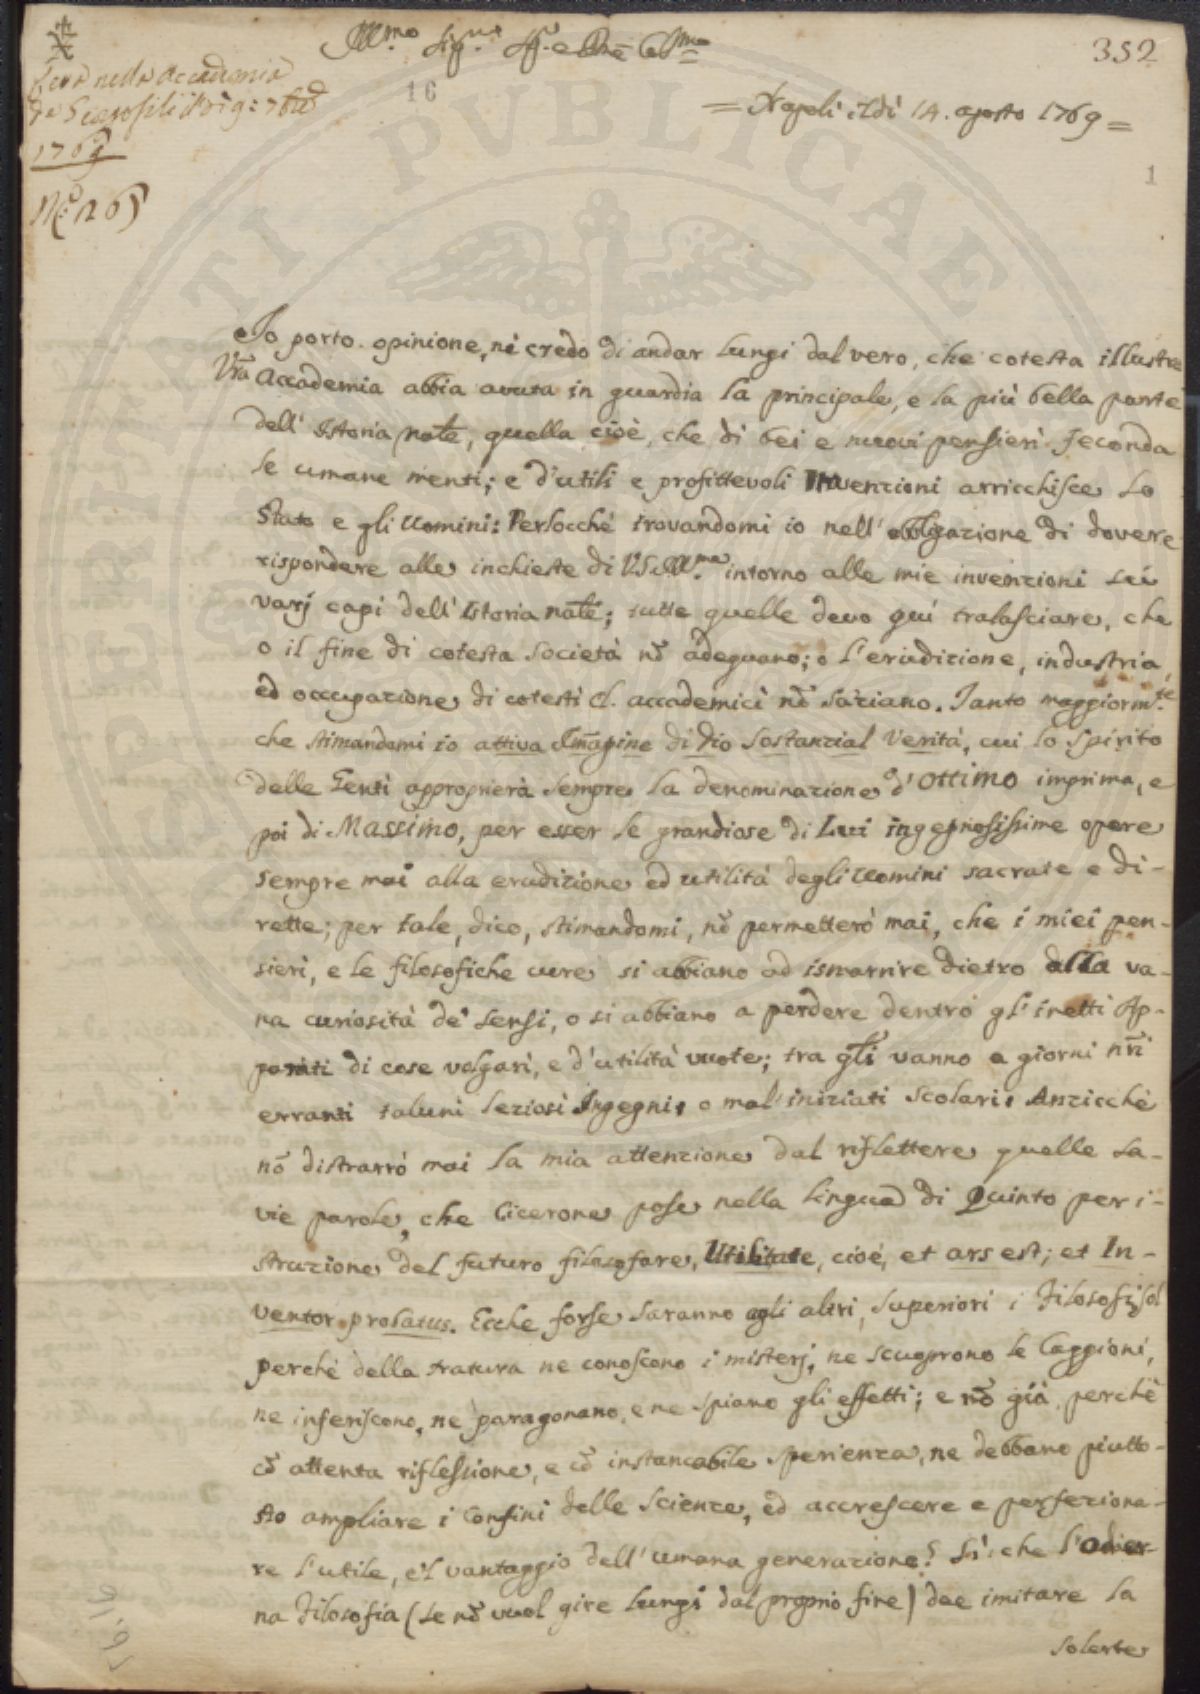 Ill.mo Sig.re Sig.e Pne Col.mo
352
16
= Napoli il dì 14. agosto 1769 =
1
Letta nella Accademia
de Georgofili
1769
N.° 265
Io porto opinione, nè credo di andar lungi dal vero, che cotesta illustre
Vr̃a Accademia abbia avuta in guardia la principale, e la più bella parte
dell' Istoria nat̃le, quella cioè, che di bei e nuovi pensieri feconda
le umane menti; e d'utili e profittevoli Invenzioni arricchisce lo
Stato e gli Uomini: Perlocchè trovandomi io nell' obbligazione di dovere
rispondere alle inchieste di V.S. Ill.ma intorno alle mie invenzioni sui
varj capi dell' Istoria nat̃le; tutte quelle devo quì tralasciare, che
o il fine di cotesta società nõ adeguano; o l'erudizione, industria,
ed occupazione di cotesti Cl. accademici nõ saziano. Tanto maggiorm.te
che stimandomi io attiva Immagine di Dio sostanzial Verità, cui lo spirito
delle Genti approprierà sempre la denominazione d' Ottimo imprima, e
poi di Massimo, per esser le grandiose di Lui ingegnosissime opere
sempre mai alla erudizione ed utilità degli Uomini sacrate e di-
rette; per tale, dico, stimandomi, nõ permetterò mai, che i miei pen-
sieri, e le filosofiche cure si abbiano ad ismarrire dietro alla va-
na curiosità de' sensi, o si abbiano a perdere dentro gl' inetti Ap-
parati di cose volgari, e d'utilità vuote; tra gli vanno a giorni nr̃i
erranti taluni leziosi Ingegni, o mal' iniziati scolari. Anzicchè
nõ distrarrò mai la mia attenzione dal riflettere quelle sa-
vie parole, che Cicerone pose nella lingua di Quinto per i-
struzione del futuro filosofare, Utilitate, cioè, et ars est; et In-
ventor prolatus. Ecche forse saranno agli altri superiori i Filosofi, sol
perchè della natura ne conoscono i misterj, ne scuoprono le Caggioni,
ne inferiscono, ne paragonano, e ne spiano gli effetti; e nõ già perchè
cõ attenta riflessione, e cõ instancabile sperienza, ne debbano piutto-
sto ampliare i Confini delle Scienze, ed accrescere e perfeziona-
re l'utile, e'l vantaggio dell' umana generazione? Sì: che l'odier-
na Filosofia (se nõ vuol gire lungi dal proprio fine) dee imitare la
solerte
PERITATI PVBLICAE